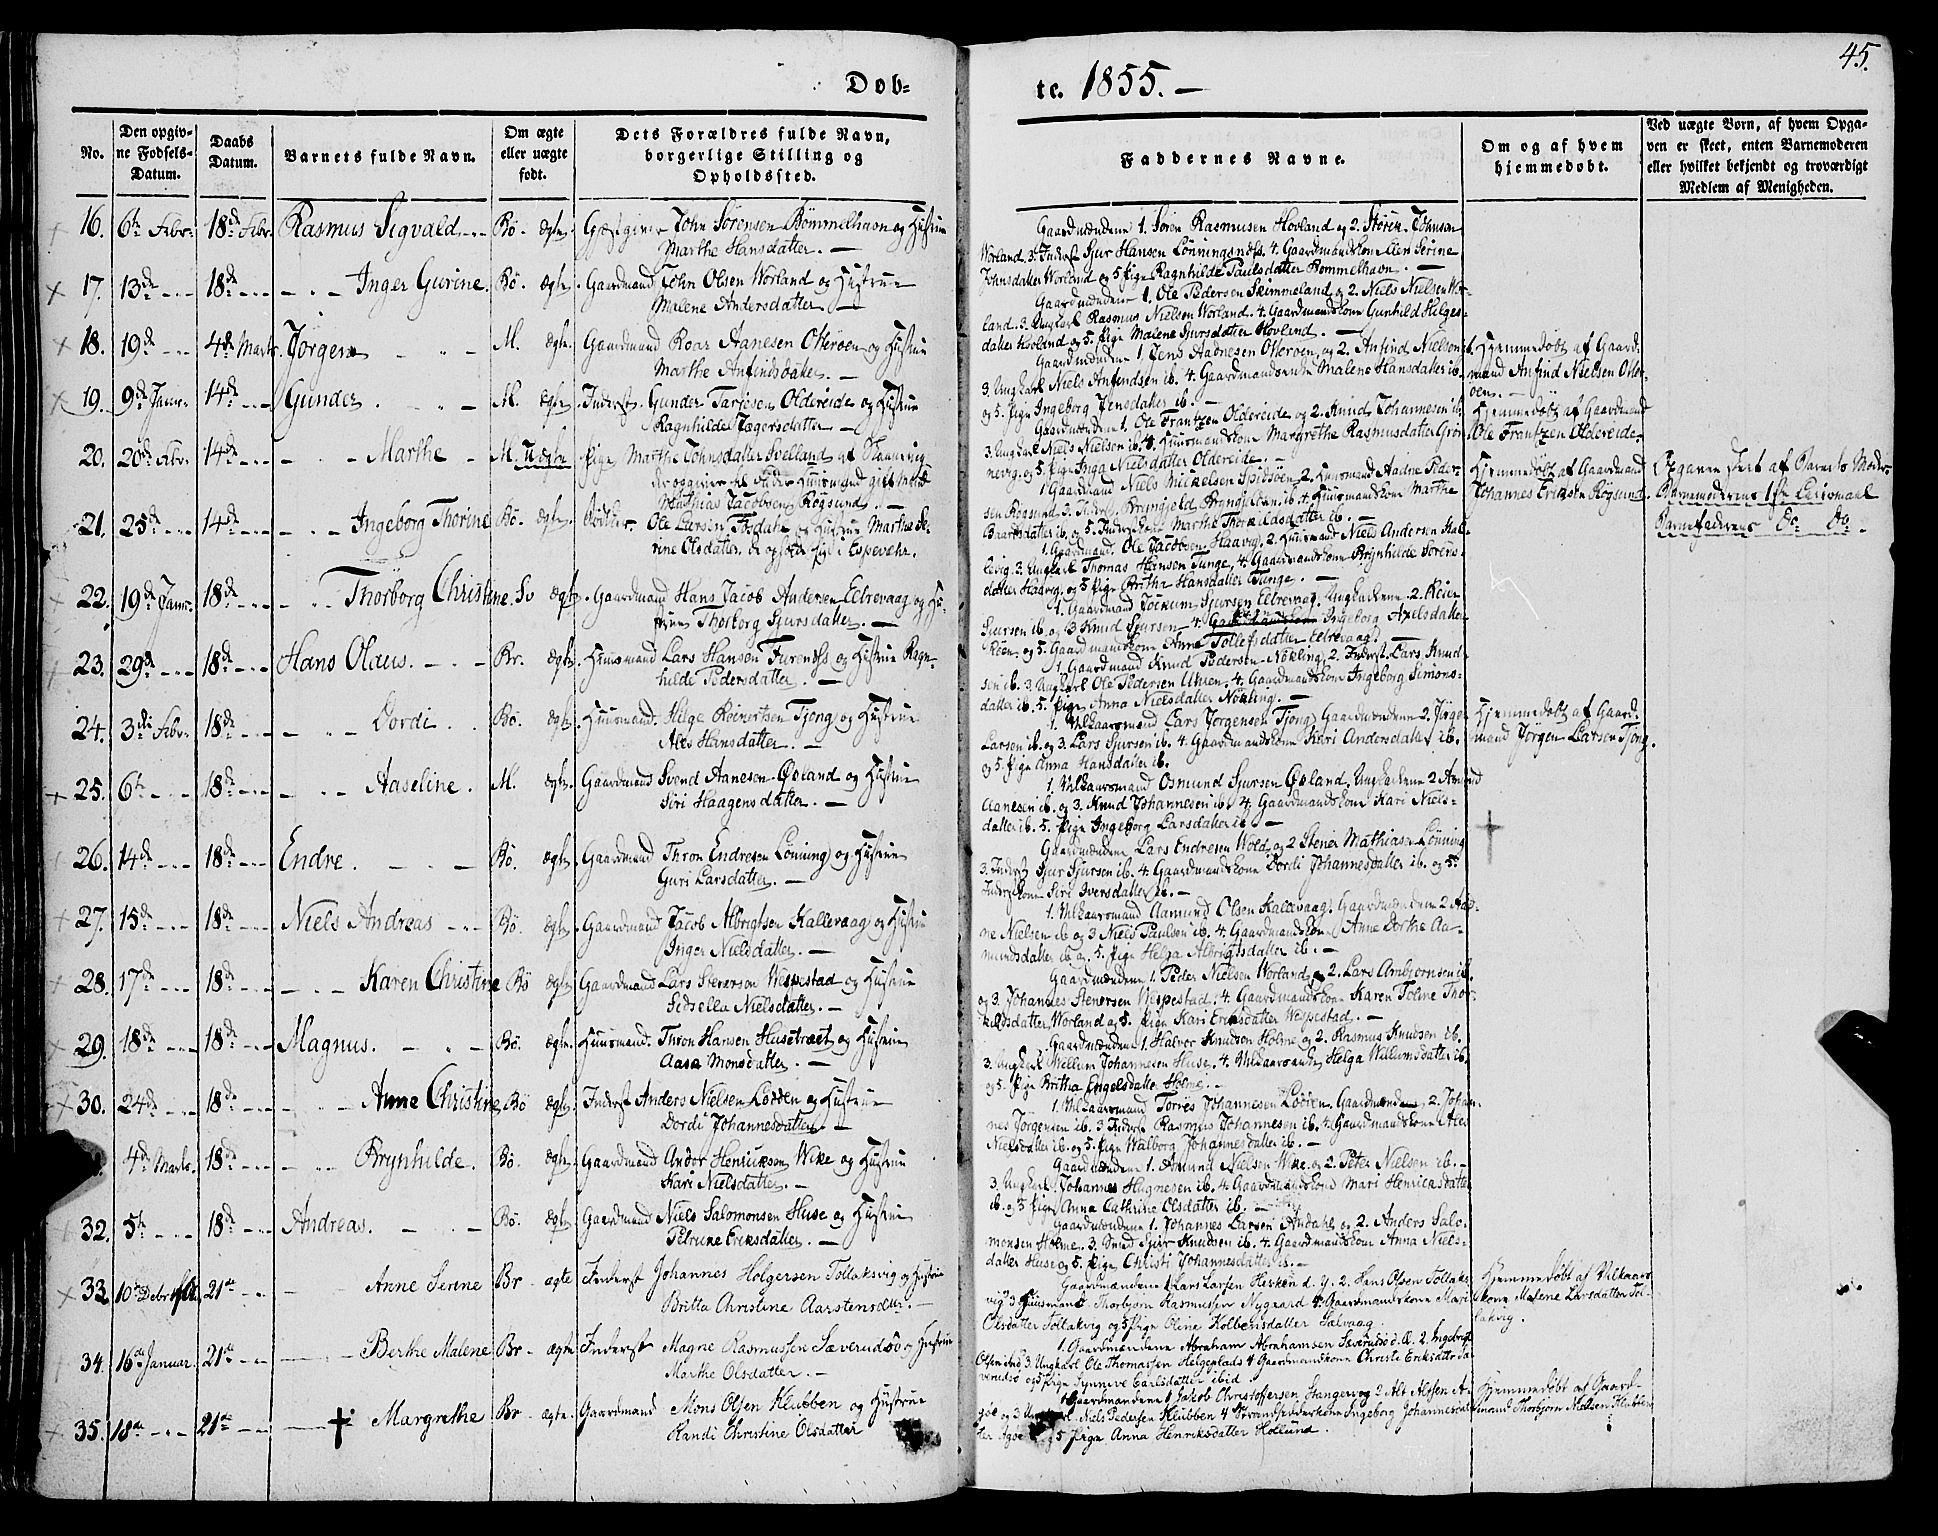 45.
Døb- te. 1855. —
No. | Den opgivne Fødsels-Datum. | Daabs Datum. | Barnets fulde Navn. | Om ægte eller uægte født. | Dets Forældres fulde Navn, borgerlige Stilling og Opholdssted. | Faddernes Navne. | Om og af hvem hjemmedøbt. | Ved uægte Børn, af hvem Opgaven er skeet, enten Barnemoderen eller hvilket bekjendt og troværdigt Medlem af Menigheden.
16. 6te Febr. 18de Febr. Rasmus Segvald Bø. ægte. Gjæstgiver John Sörensen Bömmelhavn og Hustrue
Marthe Hansdatter. —
17. 13de 18de Inger Gurine. Bø. ægte. Gaardmand John Olsen Worland og Hustrue
Malene Andersdatter —
18. 19de 4de Marts. Jörgen M. ægte. Gaardmand Roar Aanesen Otteröen og Hustrue
Marthe Anfindsdatter. —
19. 9de Januar 14de Gunder M. ægte. Inderst. Gunder Tarjesen Oldereide og Hustrue
Ragnhilde Jægersdatter —
20. 20de Febr. 14de Marthe M. Uægte Pige Marthe Johnsdatter Svelland af Skaanevig
der opgiver til Fader Huusmand gift Mand
Mathias Jacobsen Røgsund. —
21. 25de 14de Ingeborg Thorine Bø. ægte. Ole Larsen Fosdahl og Hustrue Marthe Serine
Olsdatter, de
22. 19de Janr. 18de Thorborg Christine. Sv ægte. Gaardmand Hans Jacob Andersen Eelrevaag og Hustrue
Thorborg Sjursdatter. —
23. 29de 18de Hans Olaus. Br. ægte. Huusmand Lars Hansen Furenæs og Hustrue Ragnhilde
Pedersdatter. —
24. 3die Febr. 18de Dordi Bø. ægte. Huusmand. Helge Reinertsen Tjong og Hustrue
Ales Hansdatter. —
25. 6te 18de Aaseline. M. ægte. Gaardmand Svend Aanesen Øvland og Hustrue
Siri Haagensdatter. —
26. 14de 18de Endre. Bø. ægte. Gaardmand Thron Endresen Löning og Hustrue
Guri Larsdatter. —
27. 15de 18de Niels Andreas Bø. ægte. Gaardmand Jacob Albrigtsen Kallevaag og Hustrue
Inger Nielsdatter. —
28. 17de 18de Karen Christine Bø ægte. Gaardmand Lars Stenersen Wespestad og Hustrue
Sedsella Nielsdatter. —
29. 18de 18de Magnus. Bø. ægte. Huusmand. Thron Hansen Husetræet og Hustrue
Aasa Monsdatter. —
30. 24de 18de Anne Christine Bø ægte. Inderst Anders Nielsen Lodden og Hustrue
Dordi Johannesdatter —
4de Marts. 18de Brynhilde. Bø. ægte. Gaardmand Andor Henriksen Wike og Hustrue
Kari Nielsdatter. —
32. 5te 18de Andreas. Bø. ægte. Gaardmand Niels Salomonsen Huse og Hustrue
Petrine Eriksdatter. —
33. 10de Debr 21de Anne Serine Br. ægte Inderst Johannes Holgersen Tollaksvig og Hustrue
Britta Christine Aarstensdtr. —
34. 16de Januar. 21de Berthe Malene Br. ægte Inderst Magne Rasmussen Sæverudsö og Hustrue
Marthe Olsdatter. —
35. 18de 21de † Margrethe Br. ægte. Gaardmand Mons Olsen Klubben og Hustrue
Randi Christine Olsdatter
Gaardmændene 1. Sören Rasmusen Hovland og 2. Stören Johnsen
Worland. 3. Inderst Sjur Hansen Lönningsnæss. 4. Gaardmandskone Elen Serine
Johnsdatter Worland og 5. Pige Ragnhilde Paulsdatter Bømmelhavn. —
Gaardmændene 1. Ole Pedersen Skimmeland og 2. Niels Nielsen Worland.
3. Ungkarl Rasmus Nielsen Worland. 4. Gaardmandskone Gunhild Helgesdatter
Hovland og 5. Pige Malene Sjursdatter Hovland. —
Gaardmændene 1. Jens Aadnesen Otteröen, og 2. Anfind Nielsen ib.
3. Ungkarl Niels Anfindsen ib. 4. Gaardmandsenke Malene Hansdatter ib.
og 5. Pige Ingeborg Jensdatter ib. —
Gaardmændene 1. Ole Frantzen Oldereide og 2. Knud Johannesen ib.
3. Ungkarl Niels Nielsen ib. 4. Huusmandskone Margrethe Rasmusdatter Grönnevig.
og 5. Pige Inga Nielsdatter Oldereide. —
1. Gaardmand Niels Mickelsen Spidsöen 2. Huusmand Aadne Pedersen
Røgsund 3. Inderst Brynjeld Brynjelsen ib. 4. Huusmandskone Marthe
Baardsdatter ib. og 5. Marthe Thorkildsdatter ib. —
1. Gaardmand. Ole Jacobsen Haavig, 2. Huusmand Niels Andersen
3. Ungkarl Thomas Hansen Tunge, 4. Gaardmandskone Brynhilde Sörensdatter
Haavig, og 5. Pige Britha Hansdatter Tunge. —
1. Gaardmand Jockum Sjursen Eelrevaag. Ungkarlene 2. Reier
Sjursen ib. og 3 Knud Sjursen 4. Ingeborg Axelsdatter
Röen, og 5. Gaardmandskone Anne Tollefsdatter Eelrevaag.
1. Gaardmand Knud Pedersen Nökling, 2. Inderst. Lars Knudsen
ib. 3. Ungkarl Ole Pedersen Uhren. 4. Gaardmandskone Ingeborg Simonsdatter
ib. 5. Pige Anna Nielsdatter Nökling. —
1. Vilkaarsmand Lars Jörgensen Tjong, Gaardmændene 2. Jörgen
Larsen ib. og 3. Lars Sjursen ib. 4. Gaardmandskone Kari Andersdatter ib.
og 5. Pige Anna Hansdatter ib.
1. Vilkaarsmand Osmund Sjursen Øvland, Ungkarlene 2 Amund
Aanesen ib. og 3. Knud Johannesen ib. 4. Gaardmandskone Kari Nielsdatter
ib. 5. Pige Ingeborg Larsdatter ib. —
Gaardmændene Lars Endresen Wold og 2 Stener Mathiasen Lönning
3. Inderst Sjur Sjursen ib. 4. Gaardmandskone Dordi Johannesdatter ib. og 5.
Inderstkone Siri Iversdatter ib. —
1. Vilkaarsmand Aamund Olsen Kallevaag, Gaardmændene 2 Aadne
Nielsen ib og 3 Niels Paulsen ib. 4. Gaardmandskone Anne Dorthe Aamundsdatter
ib og 5. Pige Helga Albrigtsdatter ib. —
Gaardmændene 1. Peder Nielsen Worland og 2. Lars Arnbjornsen ib.
og 3. Johannes Stenersen Wespestad. 4. Gaardmandskone Karen Toline Thorkildsdatter,
Worland og 5. Pige Kari Eriksdatter Wespestad. —
Gaardmændene 1. Halvor Knudsen Holme og 2. Rasmus Knudsen ib.
3. Ungkarl Wellum Johannesen Huse. 4. Vilkaarsenke Helga Willumsdatter ib.
og 5. Pige Britha Engelsdatter Holme. —
1. Vilkaarsmand Torres Johannesen Lodden. Gaardmændene 2. Johannes
Jørgensen ib. 3 Inderst Rasmus Johannesen ib. 4. Gaardmandskone Ales
Nielsdatter ib. og 5. Pige Walborg Johannesdatter ib. —
Gaardmændene 1. Amund Nielsen Wike og 2. Peter Nielsen ib. —
3. Ungkarl Johannes Hugnesen ib. 4. Gaardmandskone Mari Henricksdatter
ib. og 5 Pige Anna Cathrine Olsdatter ib. —
Gaardmændene 1. Johannes Larsen Andahl og 2. Anders Salomonsen
Holme. 3. Smed Sjur Knudsen ib. 4. Gaardmandskone Anna Nielsdatter
Huse og 5. Pige Christi Johannesdatter ib. —
Gaardmændene 1 Lars Larsen Hisken d. y. 2. Hans Olsen Tollaksvig
3 Huusmand Thorbjørn Rasmussen Nygaard 4 Gaardmandskone Mari
Olsdatter Tollakvig og 5 Pige Oline Kolbensdatter Halvaag.
1. Gaardmændene Abraham Abrahamsen Sæverudsö d. Æ. 2. Ingebrigt
Olsen ibid 3. Ungkarl Ole Thomassen Helgeplads 4 Gaardmandskone Christi Eriksdatter Sæverudsö
og 5 Pige Synneve Carlsdatter ibid
Gaardmændene 1 Jakob Christoffersen Stangervog 2 Alt Alfsen Agøe
og 3 Ungkarl Niels Pedersen Klubben 4 Strandsidderkone Ingeborg Johannesdatter
Agøe og 5 Pige Anna Henriksdatter Hollund.
Hjemmedøbt af Gaardmand
Anfind Nielsen Otteröen. —
Hjemmedøbt af Gaardmand
Ole Frantzen Oldereide.
Hjemmedøbt af Gaardmand
Johannes Eriksen Røgsund.
Opgaven skeet af Barnets Moder.
Barnemoderens 1ste Leiermaal
Barnefaderens do. do.
Hjemmedøbt af Gaardmand
Jörgen Larsen Tjong.
Hjemmedøbt af Vilkaarskone
Malene Larsdatter Tollakvig.
Hjemmedøbt af Gaardmand
Thorbjørn Monsen Klubben